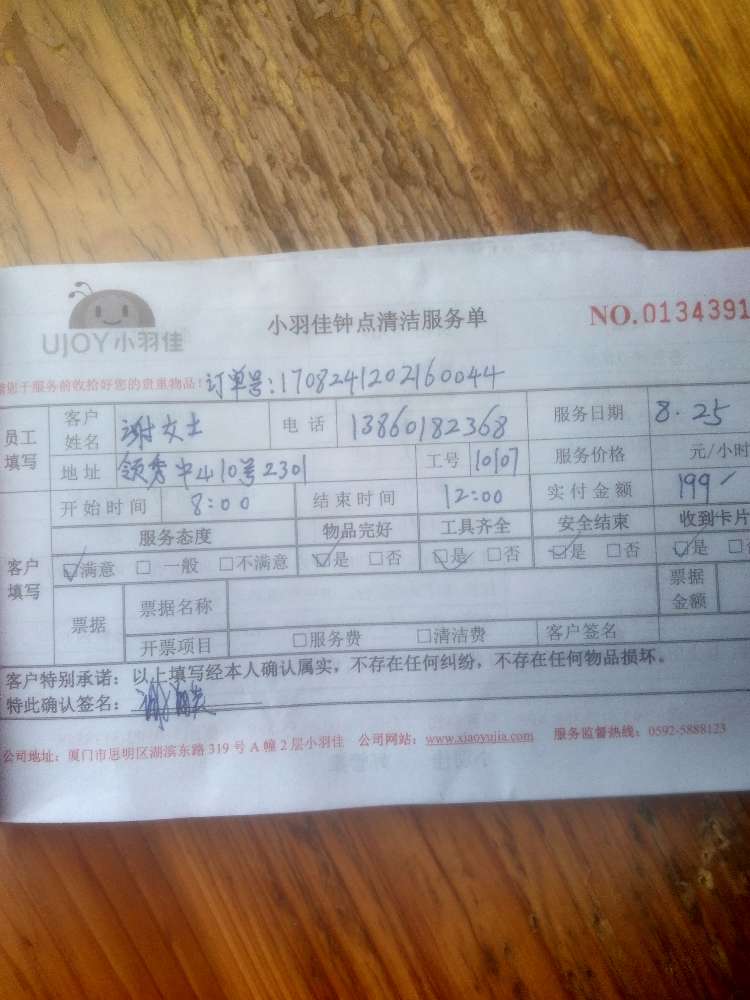 UJOY小羽佳
小羽佳钟点清洁服务单
NO.0134391
请于服务前收拾好您的贵重物品! 订单号:1708241202160044
员工填写 客户姓名 谢女士 电话 13860182368 服务日期 8.25
地址 领秀中山10号2301 工号 10107 服务价格 元/小时
客户填写 开始时间 8:00 结束时间 12:00 实付金额 199
服务态度 物品完好 工具齐全 安全结束 收到卡片
☑满意 □一般 □不满意 ☑是 □否 ☑是 □否 ☑是 □否 ☑是
票据 票据名称 票据金额
开票项目 □服务费 □清洁费 客户签名
客户特别承诺:以上填写经本人确认属实,不存在任何纠纷,不存在任何物品损坏。
特此确认签名:
公司地址:厦门市思明区湖滨东路319号A幢2层小羽佳 公司网站:www.xiaoyujia.com 服务监督热线:0592-5888123